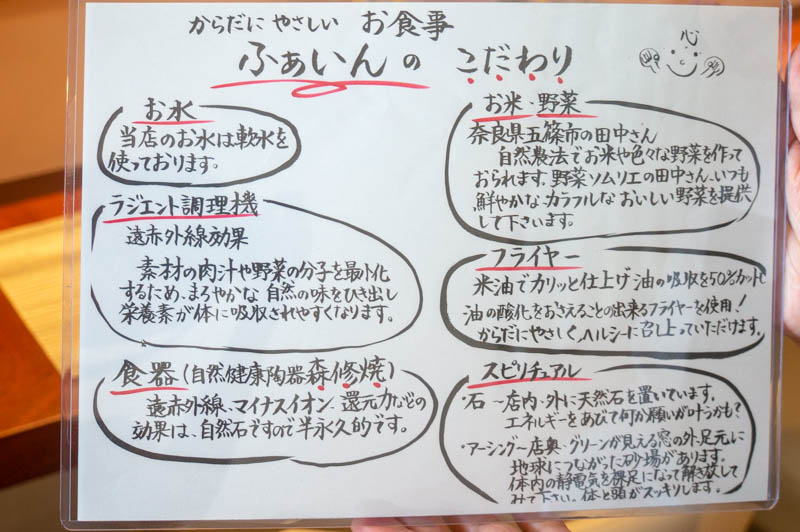 からだに やさしい お食事
ふぁいんの こだわり
心
お水
当店のお水は軟水を
使っております。
ラジエント調理機
遠赤外線効果
素材の肉汁や野菜の分子を最小化
するため、まろやかな 自然の味をひき出し
栄養素が体に吸収されやすくなります。
食器(自然健康陶器森修焼)
遠赤外線、マイナスイオン、還元力などの
効果は、自然石ですので半永久的です。
お米・野菜
奈良県五篠市の田中さん
自然農法でお米や色々な野菜を作って
おられます。野菜ソムリエの田中さん、いつも
鮮やかな、カラフルな おいしい野菜を提供
して下さいます。
フライヤー
米油でカリッと仕上げ 油の吸収を50%カットし
油の酸化をおさえることの出来るフライヤーを使用!
からだにやさしく、ヘルシーに召し上っていただけます。
スピリチュアル
・石 〜店内・外に天然石を置いています。
エネルギーをあびて何か願いが叶うかも?
・アーシング〜店奥・グリーンが見える窓の外、足元に
地球につながった砂場があります。
体内の静電気を裸足になって解き放して
みて下さい。体と頭がスッキリします。